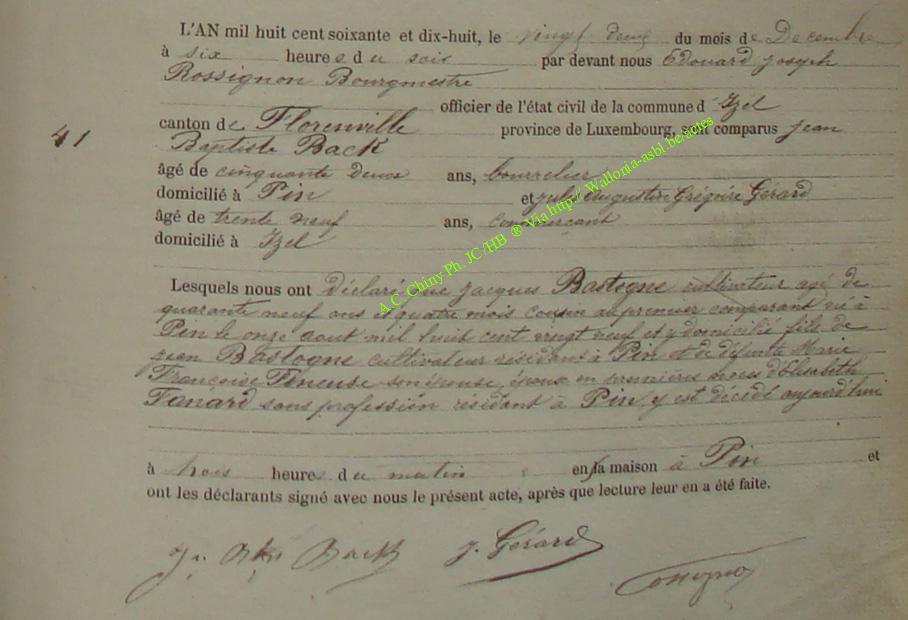 L'AN mil huit cent soixante et dix-huit, le vingt deux du mois de Decembre
à six heures du soir par devant nous Edouard Joseph
Rossignon Bourgmestre
officier de l'état civil de la commune d'Izel
canton de Florenville province de Luxembourg, sont comparus Jean
Baptiste Back
41
âgé de cinquante deux ans, bourrelier
domicilié à Pin et Jules Augustin Grégoire Gérard
âgé de trente neuf ans, commerçant
domicilié à Izel
A.C. Chiny-Ph. JC /HB ® Via http:// Wallonia-asbl.be/actes
Lesquels nous ont déclaré que Jacques Bastogne cultivateur agé de
quarante neuf ans et quatre mois cousin au premier comparant né à
Pin le onze aout mil huit cent vingt neuf et y domicilié fils de
Jean Bastogne cultivateur résidant à Pin et de défunte Marie
Françoise Teneuse son épouse, époux en premières noces d'Elisabeth
Fanard sans profession résidant à Pin, y est décédé aujourd'hui
à trois heures du matin en sa maison à Pin et
ont les déclarants signé avec nous le présent acte, après que lecture leur en a été faite.
Jn Bte Back J. Gérard